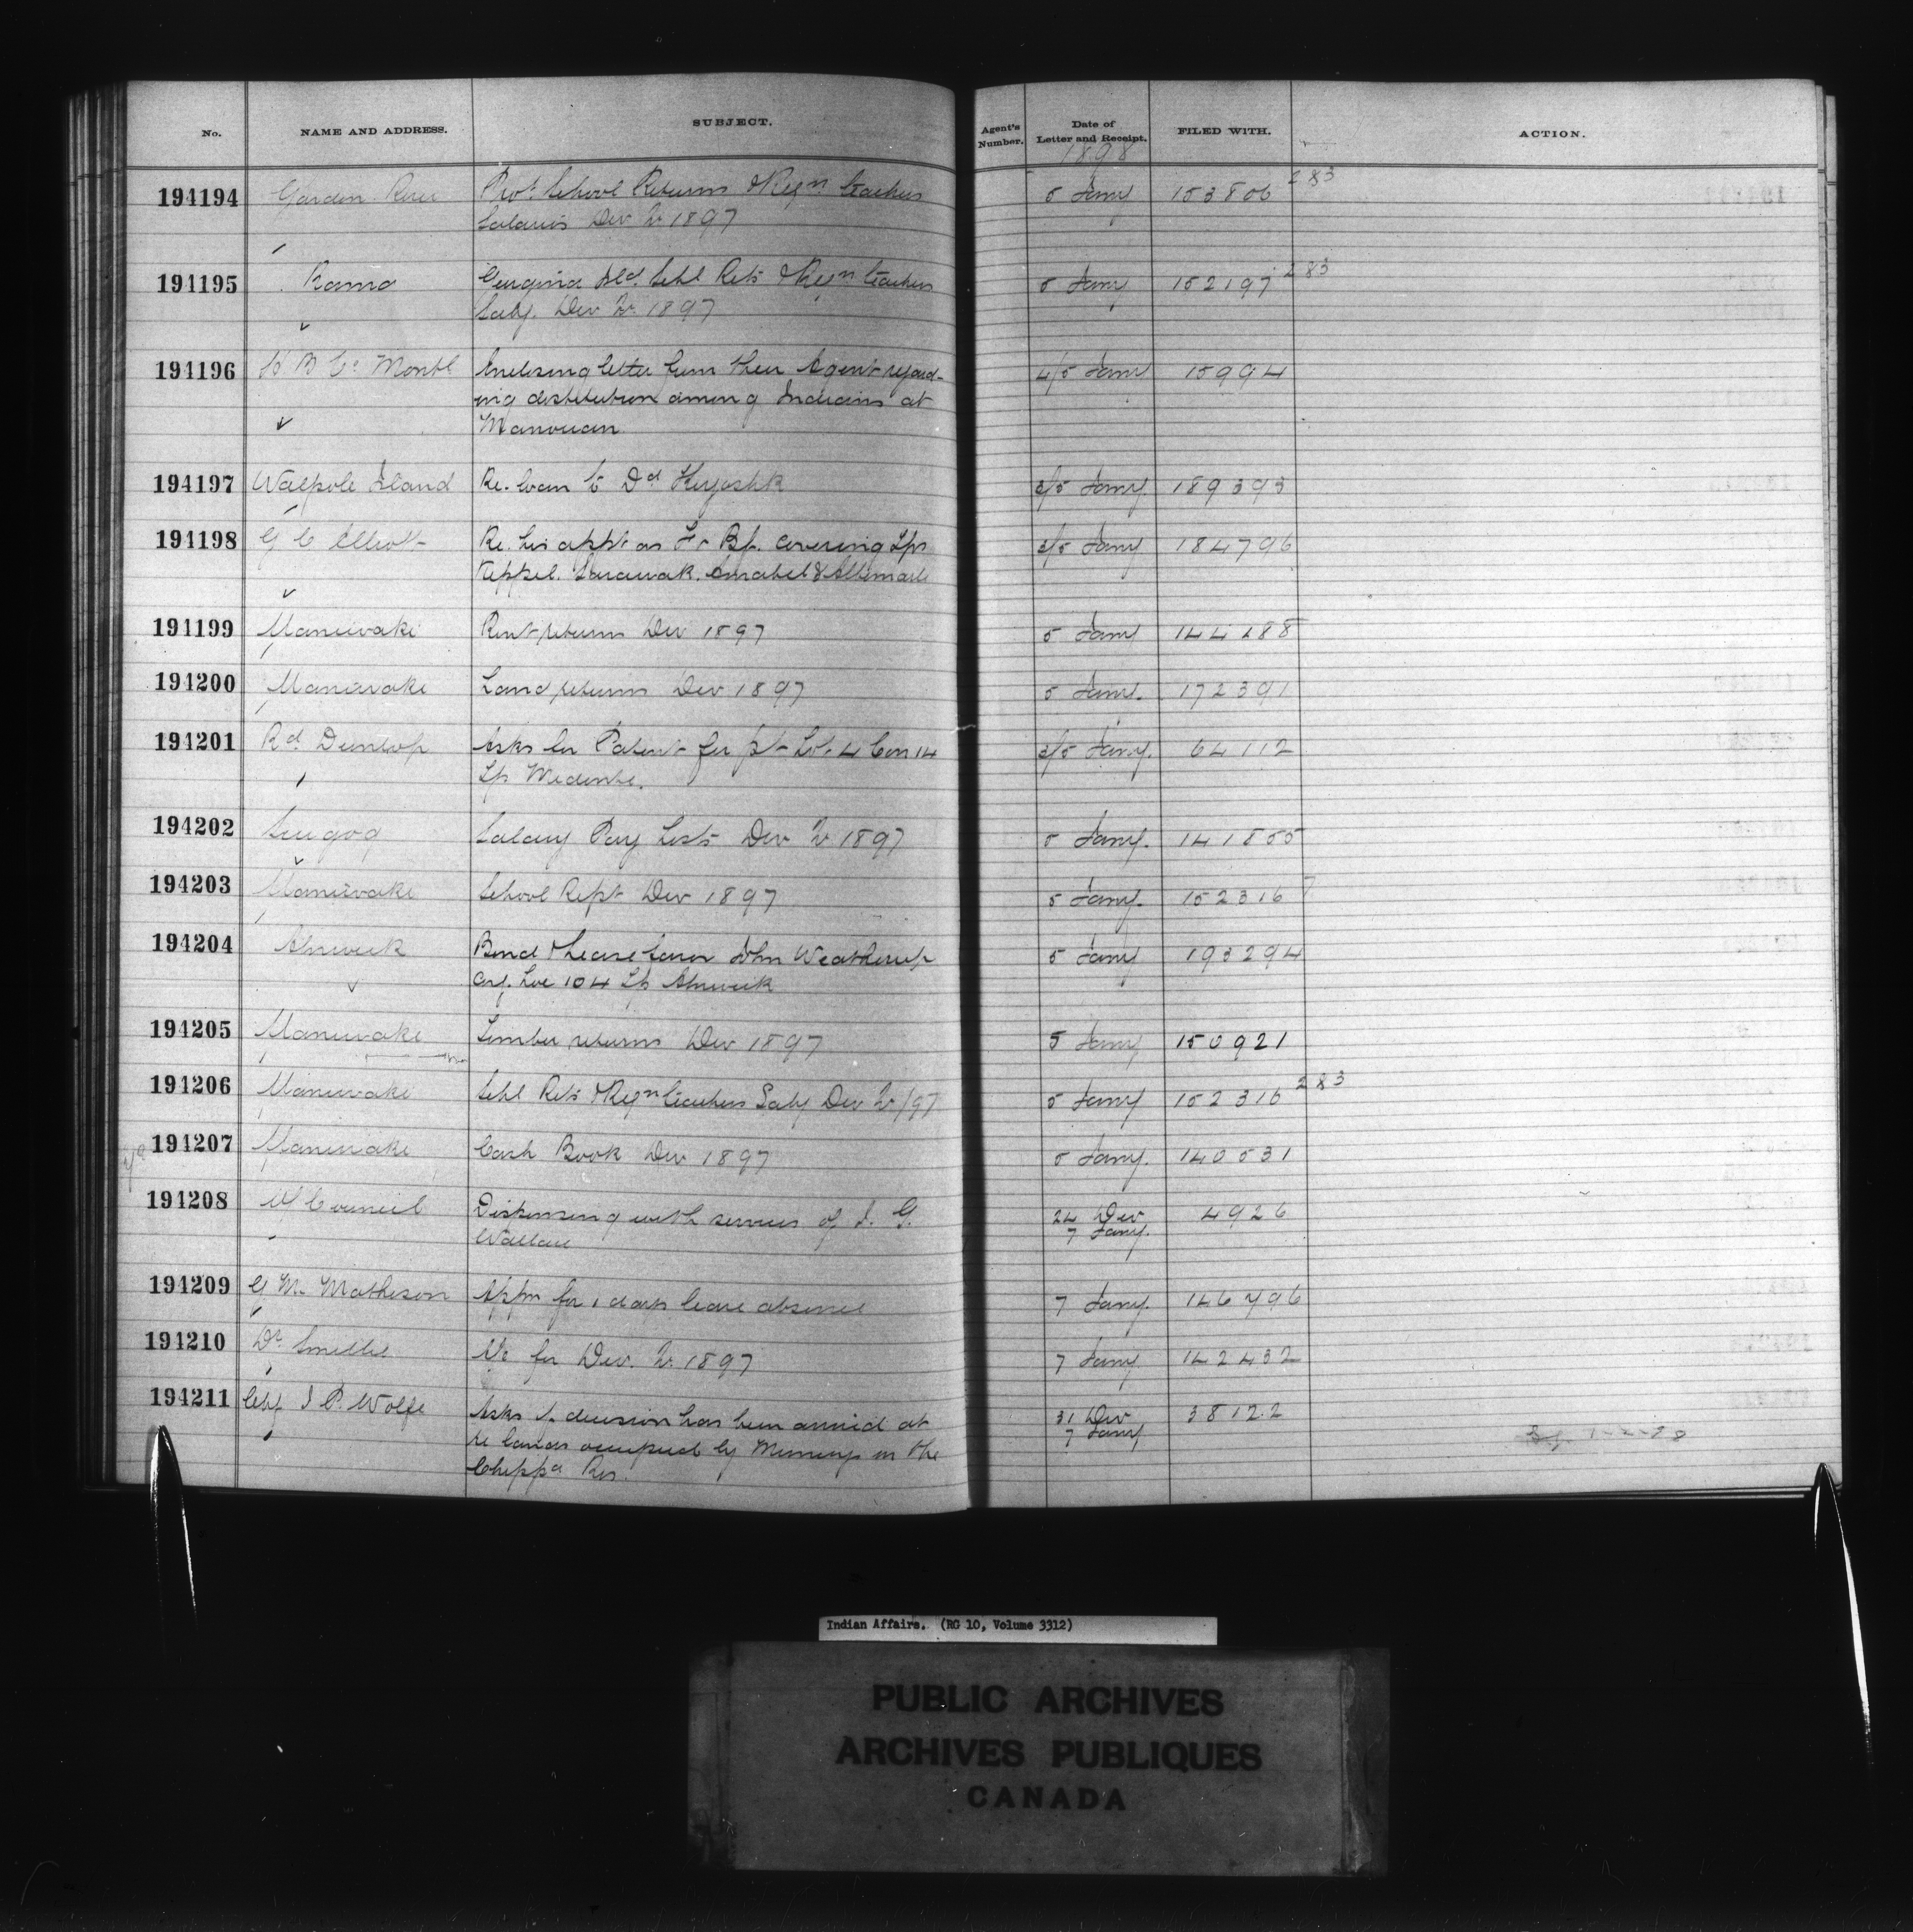 No. NAME AND ADDRESS. SUBJECT. Agent's Number. Date of Letter and Receipt. FILED WITH. ACTION.
1898
194194 Garden River Prot. School Returns & Reqn Teachers 5 Jany 153806 283
Salaries Dec Qr 1897
194195 Rama Georgina Ild. Schl Rets & Reqn Teachers 5 Jany 152197 283
Saly. Dec Qr 1897
194196 H B Co Montl Enclosing letter from their Agent regard- 4/5 Jany 15994
ing destitution among Indians at
Manouan
194197 Walpole Island Re. loan to Dd Keyoshk 3/5 Jany 189393
194198 G C Elliott Re. his appt as Fr Bf. covering Tps 3/5 Jany 184796
Keppel. Sarawak. Amabel & Albemarle
194199 Maniwaki Rent returns Dec 1897 5 Jany 144188
194200 Maniwaki Land returns Dec 1897 5 Jany. 172391
194201 Rd Dunlop Asks for Patent for pt Lot 4 Con 14 3/5 Jany. 64112
Tp Medonte.
194202 Scugog Salary Pay Lists Dec Qr 1897 5 Jany. 141855
194203 Maniwaki School Rept Dec 1897 5 Jany. 152316 7
194204 Alnwick Bond & Lease favor John Weatherup 5 Jany 193294
Loc 104 Tp Alnwick
194205 Maniwaki Timber returns Dec 1897 5 Jany 150921
194206 Maniwaki Schl Rets & Reqn Teachers Saly Dec Qr/97 5 Jany 152316 283
194207 Maniwaki Cash Book Dec 1897 5 Jany. 140531
194208 Council Dispensing with services of J. G. 24 Dec 4926
Wallace 7 Jany.
194209 G M. Matheson Appn for 1 days leave absence 7 Jany. 146796
194210 Dr Smellie for Dec. Qr. 1897 7 Jany 142432
194211 Chf J P. Wolfe Asks if decision has been arrived at 31 Dec 38122
re lands occupied by Munceys on the 7 Jany
Chippa Res. 1-2-98
Indian Affairs. (RG 10, Volume 3312)
PUBLIC ARCHIVES
ARCHIVES PUBLIQUES
CANADA